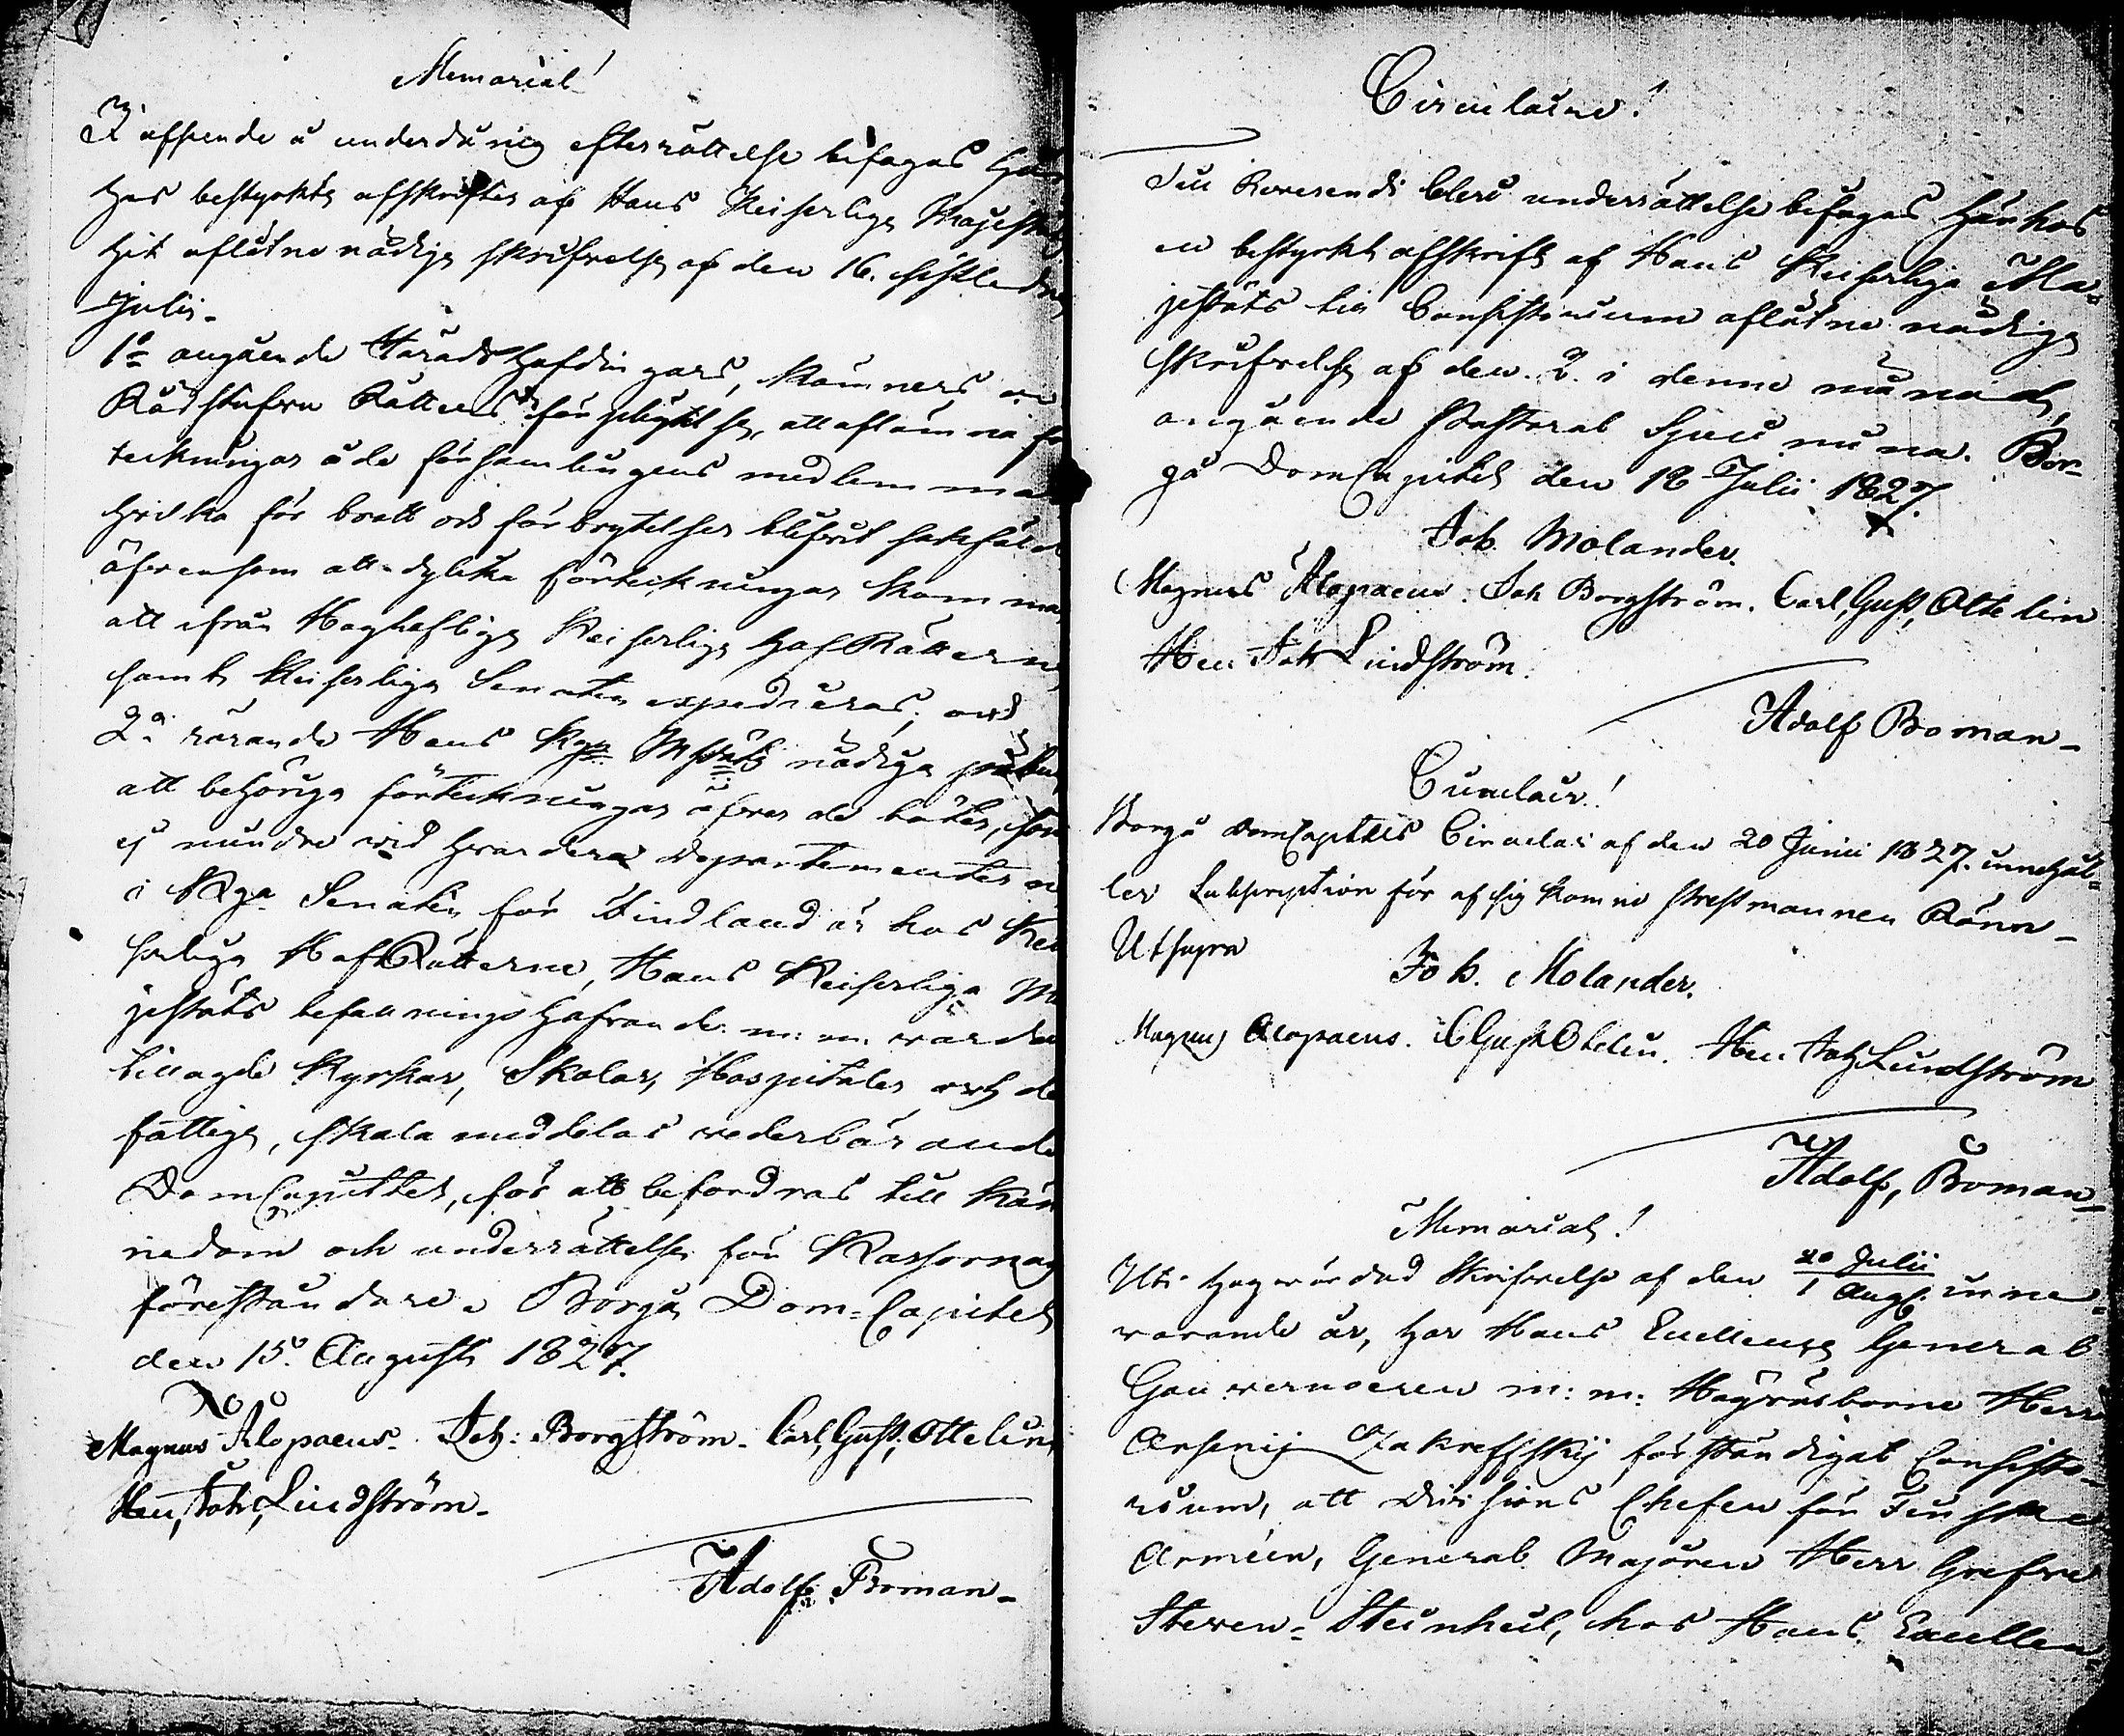 Memorial!
I afseende å underdånig efterrättelse bifogas här
hos bestyrkte afskrifter af Hans Keiserliga Majestäts
hit aflåtne nådiga skrifvelse af den 16. sistledne
Julii.
1o angående Häradshöfdingars, Kämners och
Rådstufvu Rättens förpligtelse, att aflämna för
teckningar å de församlingens medlemmar
hvilka för brott och förbrytelser blifvit sakfälde
äfvensom att dylika förteckningar komma
att ifrån Höglofliga Keiserliga Hof Rätterne
samt Keiserliga Senaten expedieras; och
2o rörande Hans Kga Mjsts nådiga påbud,
att behöriga förteckningar öfver de böter, som
ej mindre vid hvardera Departementerne
i Kga Senaten för Findland än hos Kei
serliga Hof Rätterne, Hans Keiserliga Ma
jestäts befallningshafvande m: m. varda
tillagde Kyrkor, Skolar, Hospitaler och de
fattige, skola meddelas vederbörande
DomCapitel, för att befordras till kän
nedom och underrättelse för Kassornas
föreståndare. Borgå Dom-Capitel
den 15. Augusti 1827.
Magnus Alopaeus. Joh: Borgström. Carl, Gust, Ottelin,
Hen, Joh, Lindström.
Adolf Boman.
Circulaire!
Till Reverendi Cleri underrättelse bifogas härhos
en bestyrkt afskrift af Hans Keiserliga Ma-
jestäts till Consistorium aflåtne nådiga
skrifvelse af den 2. i denne månad,
angående Pastoral
gå DomCapitel den 18 Julii 1827.
Joh. Molander.
Magnus Alopaeus. Joh Borgström. Carl, Gust, Ottelin
Hen Joh Lindström.
Adolf Boman.
Circulair!
Borgå DomCapitels Circulär af den 20 Junii 1827. innehål-
ler Subscription för af sig komne Prestmannen Rönn-
Ut supra
Joh. Molander.
Magnus Alopaeus. C Gust Ottelin. Hen Joh Lindström
Adolf, Boman
Memorial!
Uti högvördad Skrifvelse af den 20 Julii / 1 Aug. inne-
varande år, har Hans Excellence General
Gouverneuren m: m: Högvälborne Herr
Arsenij Zakreffskij förständigat Consisto-
rium, att Divisions Chefen för Finska
Arméen, General Majoren Herr Grefve
Steven-Steinheil, hos Hans Excellen-